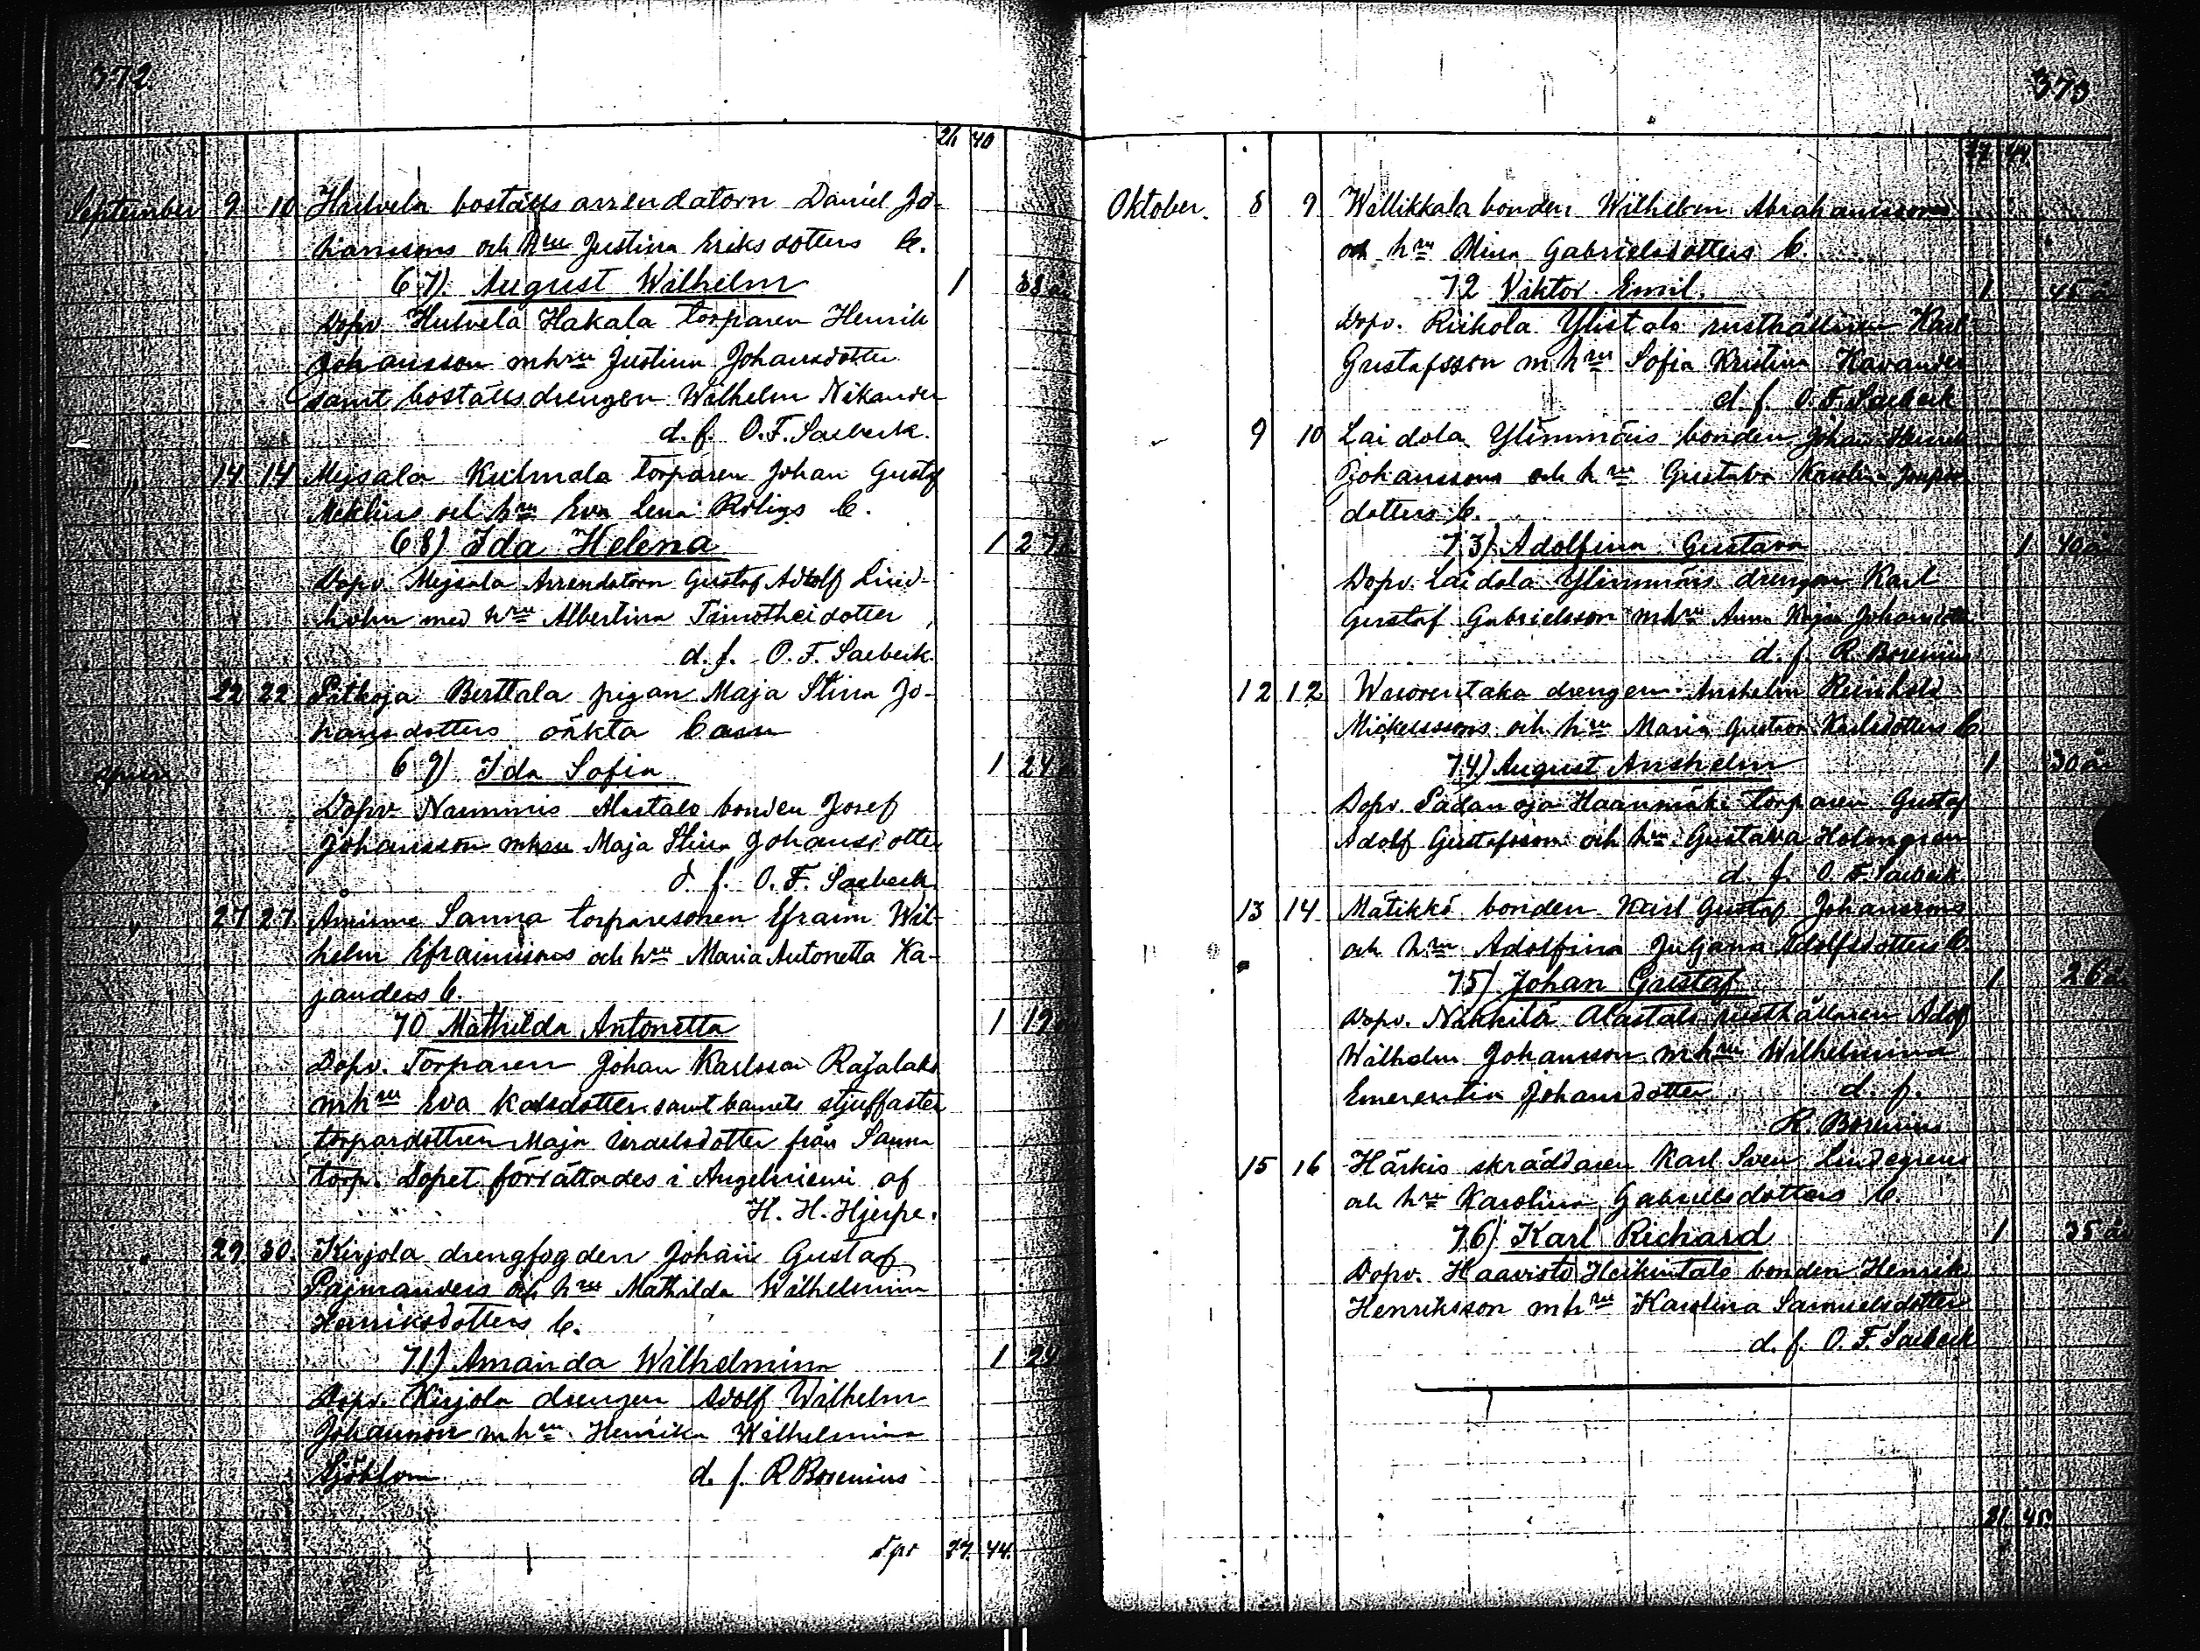 372.
26 40
September 9 10 Hulvela boställsarrendatorn Daniel Jo-
hanssons och hru Justina Eriksdotters b.
67) August Wilhelm 1 38 år
Dopv. Hulvela Hakala torparen Henrik
Johansson mhru Justina Johansdotter
samt boställsdrengen Wilhelm Nikander
d. f. O. F. Saebeck.
" 14 14 Mejsala Kulmala torparen Johan Gustaf
och hru Eva Lena b.
68) Ida Helena 1 27
Dopv. Mejsala Arrendatorn Gustaf Adolf Lind-
holm med hru Albertina Timotheidotter
d. f. O. F. Saebeck.
22 22 Pitkoja Berttala pigan Maja Stina Jo-
hansdotters oäkta barn
69) Ida Sofia 1 24
Dopv. Nummis Alastalo bonden Josef
Johansson mhru Maja Stina Johansdotter
d. f. O. F. Saebeck
" 27 27 Åminne Sauna torparesonen Efraim Wil-
helm Efraimssons och hru Maria Antonetta Ka-
janders b.
70 Mathilda Antonetta 1 19
Dopv. Torparen Johan Karlsson Rajalaks
mhru Eva Karlsdotter samt barnets styffaster
torpardottren Maja Israelsdotter från Sauna
torp. Dopet förrättades i Angelniemi af
H. H. Hjerpe.
" 29. 30. Kirjola drengfogden Johan Gustaf
Pajmanders och hru Mathilda Wilhelmina
Henriksdotters b.
71) Amanda Wilhelmina 1 29
Dopv. Kirjola drengen Adolf Wilhelm
Johansson mhru Henrika Wilhelmina
Sjöblom d. f. R Borenius
Tpr 27. 44.
373
27 44
Oktober. 8 9 Wallikkala bonden Wilhelm Abrahamssons
och hru Mina Gabrielsdotters b.
72 Viktor Emil. 1 45 år
Dopv. Riihola Ylistalo rusthållaren Karl
Gustafsson m hru Sofia Kristina Kavander
d. f. O. F. Saebeck
9 10 Laidola Ylimmäis bonden Johan Henrik
Johanssons och hru Gustava Karolina
dotters b.
73) Adolfina Gustava 1 40 år
Dopv. Laidola Ylimmäis drengen Karl
Gustaf Gabrielsson mhru Anna Kajsa Johansdotter
d. f. R. Borenius
12 12 drengen Anshelm Reinhold
Mickelssons och hru Maria Gustava Karlsdotters b
74) August Anshelm 1 30 år
Dopv. Sadanoja Haanmäki torparen Gustaf
Adolf Gustafsson och hru Gustava Holmgren
d. f. O. F. Saebeck
13 14. Mätikkö bonden Karl Gustaf Johanssons
och hru Adolfina Juljana Adolfsdotters b.
75) Johan Gustaf 1 26 år
Dopv. Nakkila Alastalo rusthållaren Adolf
Wilhelm Johansson mhru Wilhelmina
Emerentia Johansdotter d. f.
R. Borenius
15 16 Härkis skräddaren Karl Sven Lindegrens
och hru Karolina Gabrielsdotters b.
76) Karl Richard 1 35 år
Dopv. Haavisto Heikintalo bonden Henrik
Henriksson mhru Karolina Samuelsdotter
d. f. O. F. Saebeck
45